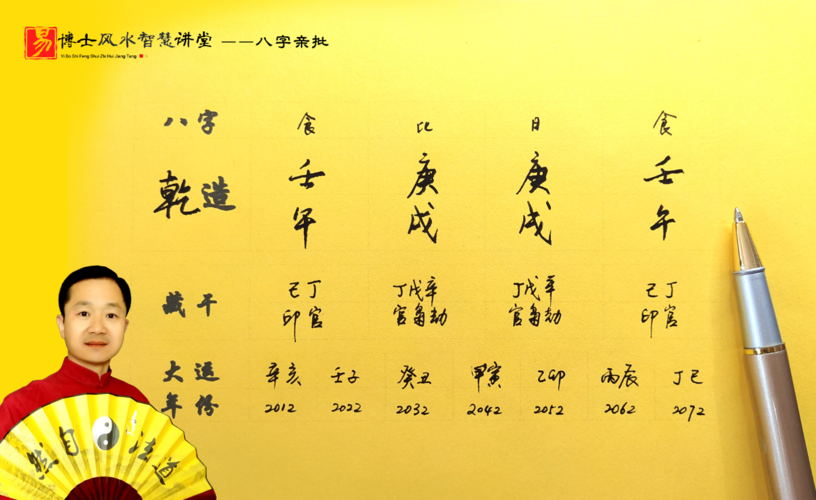 易 博士风水智慧讲堂 ——八字亲批
Yi Bo Shi Feng Shui Zhi Hui Jiang Tang
八字 食 比 日 食
乾造 壬 庚 庚 壬
午 戌 戌 午
藏干 己丁 丁戊辛 丁戊辛 己丁
印官 官枭劫 官枭劫 印官
大运 辛亥 壬子 癸丑 甲寅 乙卯 丙辰 丁巳
年份 2012 2022 2032 2042 2052 2062 2072
然自法道